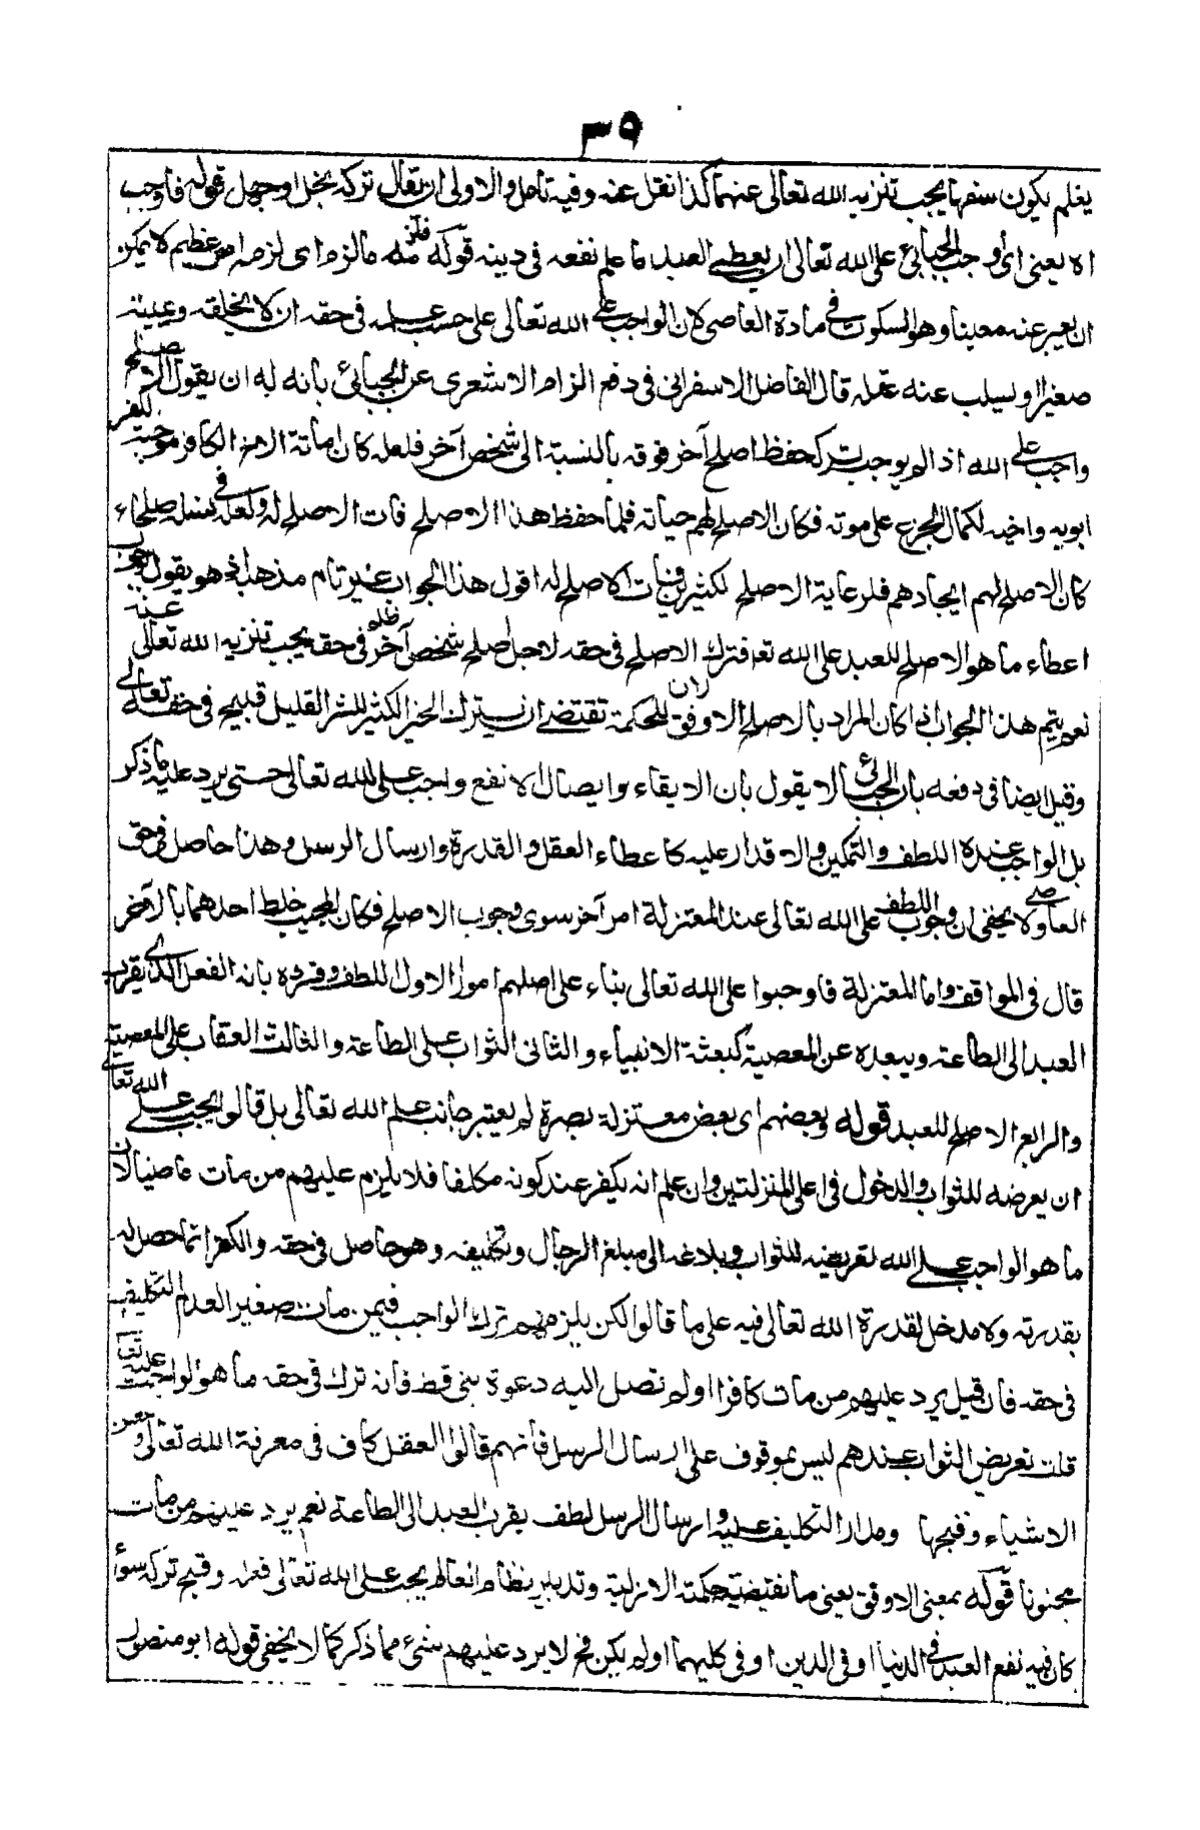 ٣٥
يعلم يكون سفها يجب تنزيه الله تعالى عنهما كذا نقل عنه وفيه تامل والاولى ان يقال تركه بخل او جهل قوله فاوجب
اه يعني اي أوجب الجبائي على الله تعالى ان يعطي العبد ما علم نفعه في دينه قوله فلزمه ما لزم اي لزمه امر عظيم لا يمكن
ان يعبر عنه معينا وهو السكوت في مادة العاصي لان الواجب على الله تعالى على حسب علمه في حقه ان لا يخلقه و يميته
صغيرا او يسلب عنه عقله قال الفاضل الاسفرائني في دفع الزام الاشعري عن الجبائي بانه له ان يقول الاصلح
واجب على الله اذا لم يوجب تركه حفظ اصلح آخر فوقه بالنسبة الى شخص آخر فلعله كان اماتة الاخ الكافر موجبة لكفر
ابويه واخيه لكمال الجزع على موته فكان الاصلح لهم حياته فلما حفظ هذا الاصلح فات الاصلح له ولعله في نسله صلحاء
كان الاصلح لهم ايجادهم فلرعاية الاصلح لكثيرين فات الاصلح له اقول هذا الجواب غير تام مذهبا اذ هو يقول بوجوب
اعطاء ما هو الاصلح للعبد على الله تعا فترك الاصلح في حقه لاجل اصلح شخص آخر ظلم في حقه يجب تنزيه الله تعالى عنه
نعم يتم هذا الجواب اذا كان المراد بالاصلح الاوفق للحكمة لان الحكمة تقتضي ان يترك الخير الكثير للشر القليل قبيح في حقه تعالى
وقيل ايضا في دفعه بان الجبائي لا يقول بان الابقاء وايصال الانفع واجب على الله تعالى حتى يرد عليه ما ذكر
بل الواجب عنده اللطف والتمكين والاقدار عليه كاعطاء العقل والقدرة وارسال الرسل وهذا حاصل في حق
العاصي ولا يخفى ان وجوب اللطف على الله تعالى عند المعتزلة امر آخر سوى وجوب الاصلح فكان المجيب خلط احدهما بالآخر
قال في المواقف واما المعتزلة فاوجبوا على الله تعالى بناء على اصلهم امورا الاول اللطف وفسروه بانه الفعل الذي يقرب
العبد الى الطاعة ويبعده عن المعصية كبعثة الانبياء والثاني الثواب على الطاعة والثالث العقاب على المعصية
والرابع الاصلح للعبد قوله وبعضهم اي بعض معتزلة بصرة لم يعتبر جانب علم الله تعالى بل قالوا يجب على الله تعالى
ان يعرضه للثواب والدخول في اعلى المنزلتين وان علم انه يكفر عند كونه مكلفا فلا يلزم عليهم من مات عاصيا لان
ما هو الواجب على الله تعريضه للثواب وبلاغه الى مبلغ الرجال وتكليفه وهو حاصل في حقه والكفر انما حصل له
بقدرته ولا مدخل لقدرة الله تعالى فيه على ما قالوا لكن يلزمهم ترك الواجب فيمن مات صغيرا لعدم التكليف
في حقه فان قيل يرد عليهم من مات كافرا او لم تصل اليه دعوة نبي قط فانه ترك في حقه ما هو الواجب عليه تعا
قلت تعريض الثواب عندهم ليس بموقوف على ارسال الرسل فانهم قالوا العقل كاف في معرفة الله تعالى وحسن
الاشياء وقبحها ومدار التكليف عليه وارسال الرسل لطف يقرب العبد الى الطاعة نعم يرد عليهم من مات
مجنونا قوله بمعنى الاوفق يعني ما تقتضيه حكمته الازلية وتدبير نظام العالم يجب على الله تعالى فعله وقبح تركه سواء
كان فيه نفع العبد في الدنيا او في الدين او في كليهما او لم يكن فح لا يرد عليهم شيء مما ذكر كما لا يخفى قوله ابو منصور